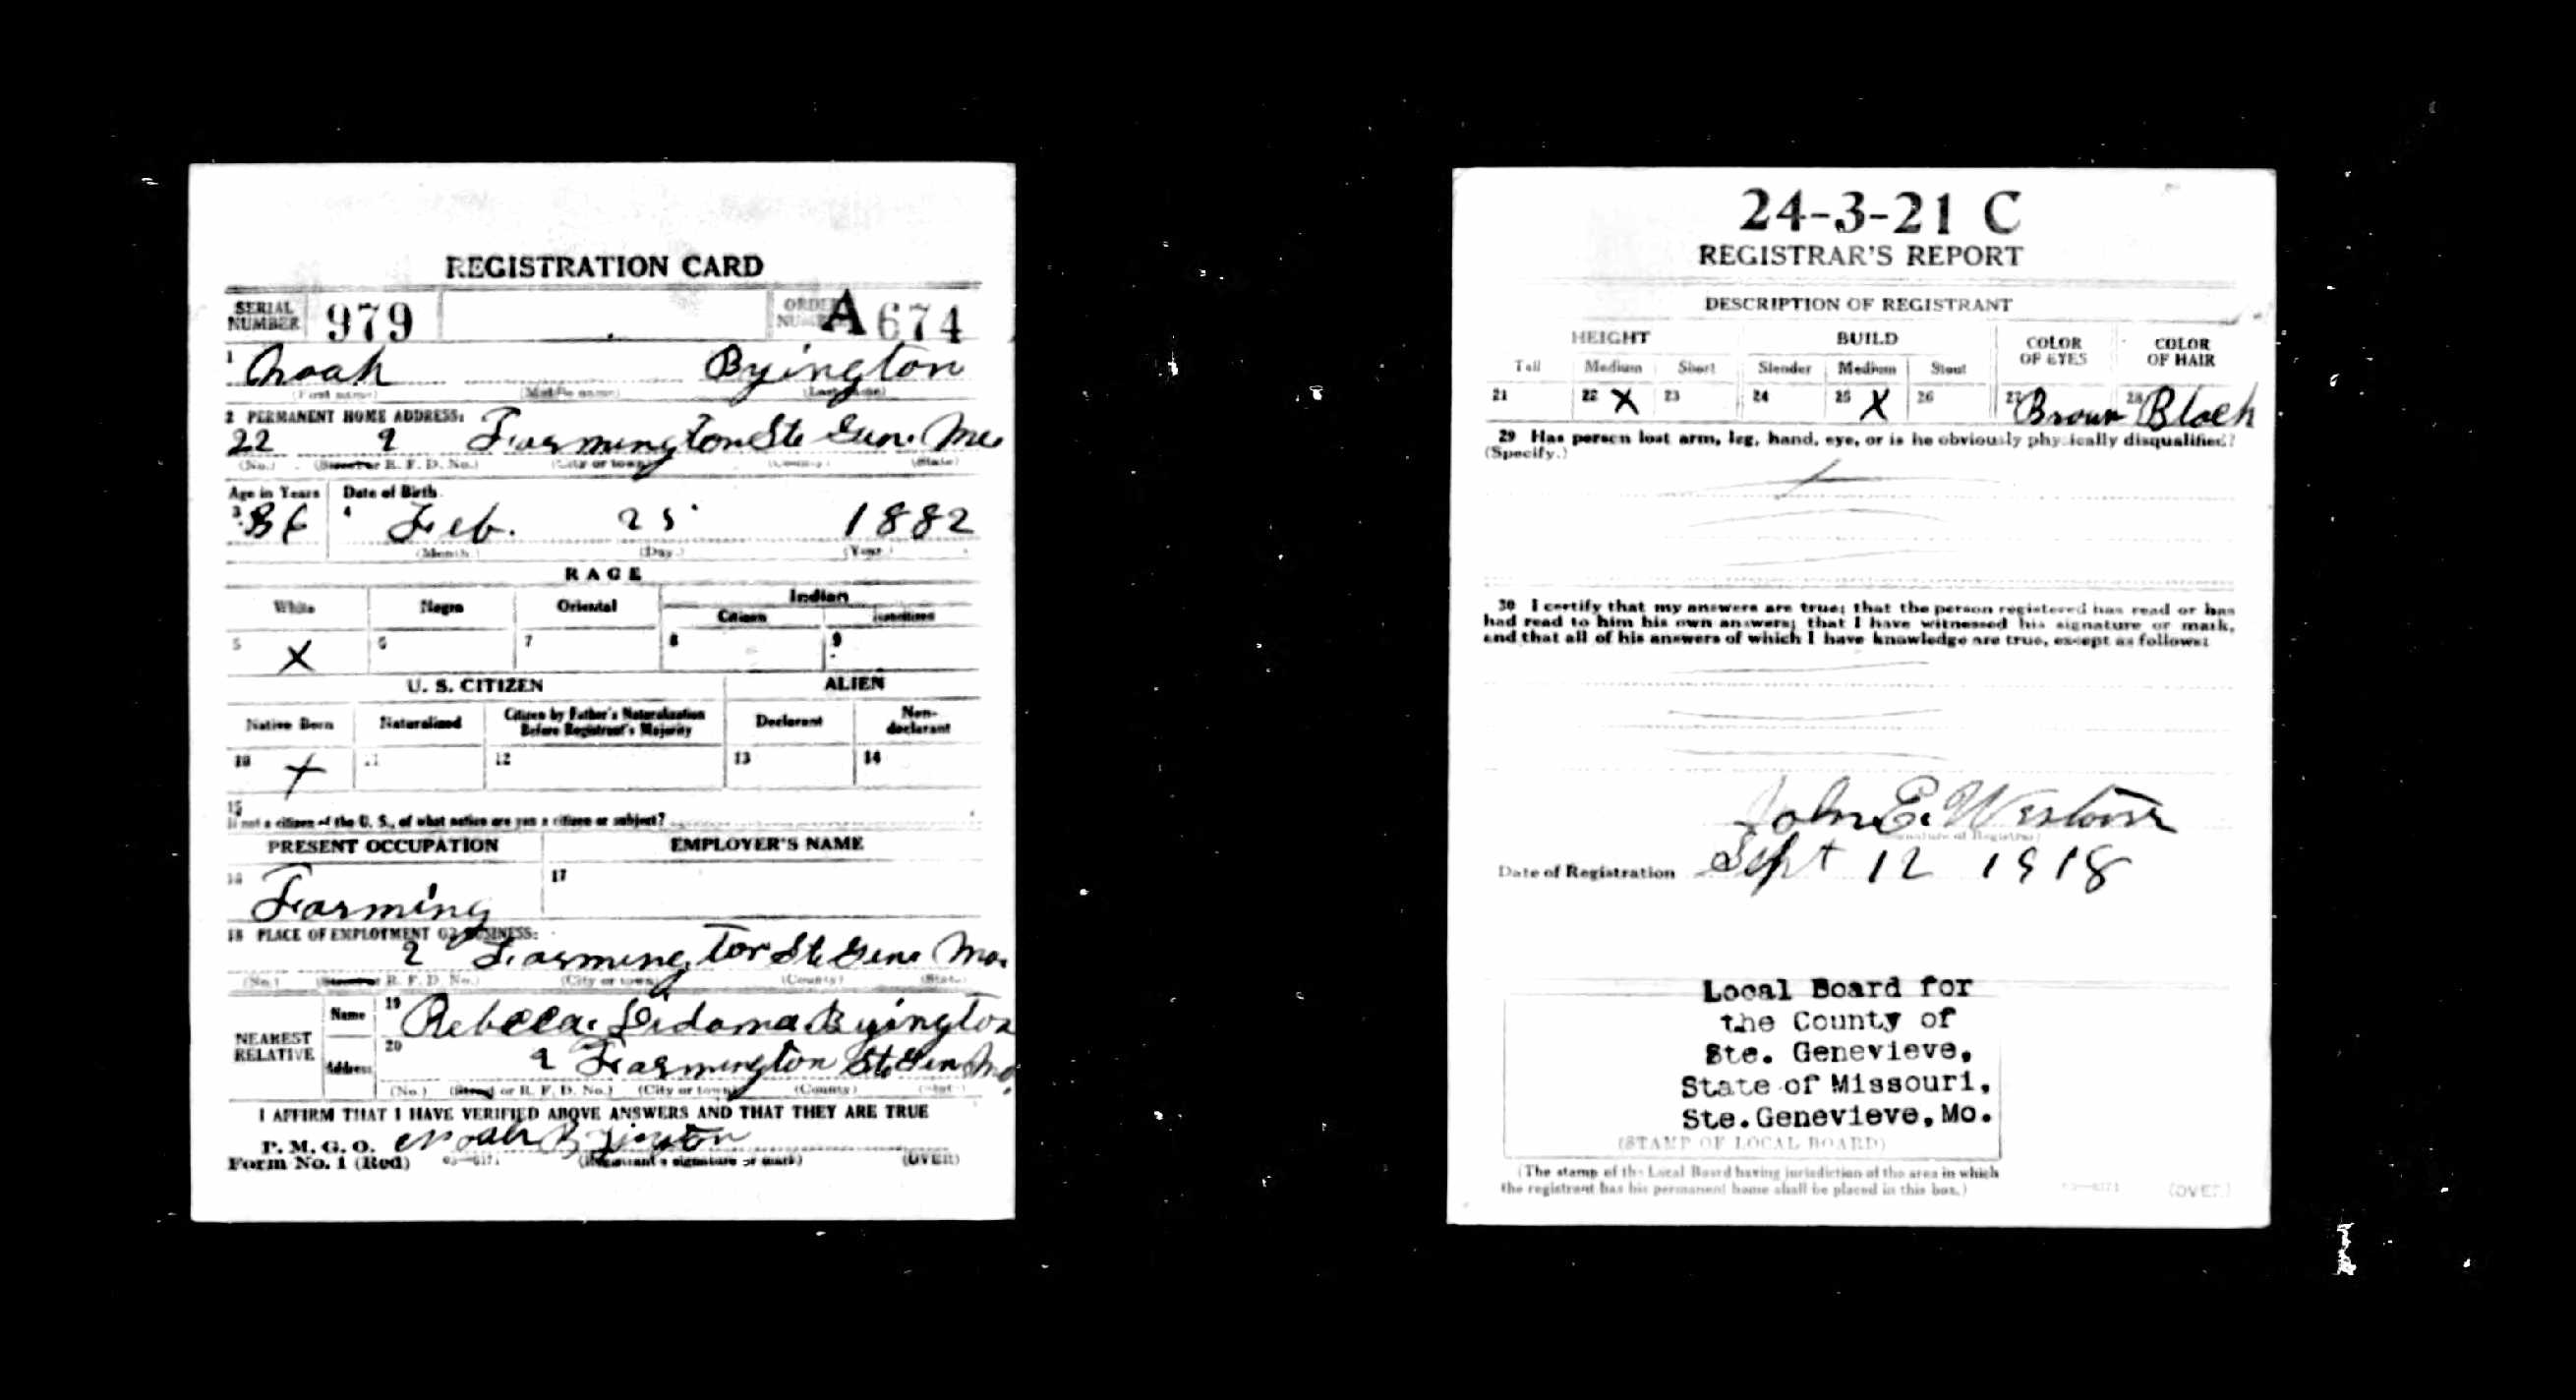 REGISTRATION CARD
SERIAL NUMBER 979 ORDER NUMBER A 674
1 Noah Byington
(First name) (Middle name) (Last name)
2 PERMANENT HOME ADDRESS:
22 2 Farmington Ste Gen. Mo
(No.) (Street or R. F. D. No.) (City or town) (County) (State)
Age in Years Date of Birth
3 36 4 Feb. 25 1882
(Month.) (Day.) (Year.)
RACE
White Negro Oriental Indian
Citizen Noncitizen
5 X 6 7 8 9
U. S. CITIZEN ALIEN
Native Born Naturalized Citizen by Father's Naturalization Before Registrant's Majority Declarant Non-declarant
10 X 11 12 13 14
15
If not a citizen of the U. S., of what nation are you a citizen or subject?
PRESENT OCCUPATION EMPLOYER'S NAME
16 Farming 17
18 PLACE OF EMPLOYMENT OR BUSINESS:
2 Farmington Ste Gene Mo.
(No.) (Street or R. F. D. No.) (City or town) (County) (State)
NEAREST RELATIVE Name 19 Rebecca Byington
Address 20 2 Farmington Ste Gen Mo.
(No.) (Street or R. F. D. No.) (City or town) (County) (State)
I AFFIRM THAT I HAVE VERIFIED ABOVE ANSWERS AND THAT THEY ARE TRUE
P. M. G. O.
Form No. 1 (Red) Noah Byington
03—6171 (Registrant's signature or mark) (OVER)
24-3-21 C
REGISTRAR'S REPORT
DESCRIPTION OF REGISTRANT
HEIGHT BUILD COLOR OF EYES COLOR OF HAIR
Tall Medium Short Slender Medium Stout
21 22 X 23 24 25 X 26 27 Brown 28 Black
29 Has person lost arm, leg, hand, eye, or is he obviously physically disqualified?
(Specify.)
30 I certify that my answers are true; that the person registered has read or has
had read to him his own answers; that I have witnessed his signature or mark,
and that all of his answers of which I have knowledge are true, except as follows:
John E. Westover
(Signature of Registrar)
Date of Registration Sept 12 1918
Local Board for
the County of
Ste. Genevieve,
State of Missouri,
Ste. Genevieve, Mo.
(STAMP OF LOCAL BOARD)
(The stamp of the Local Board having jurisdiction of the area in which
the registrant has his permanent home shall be placed in this box.)
03—6171 (OVER)